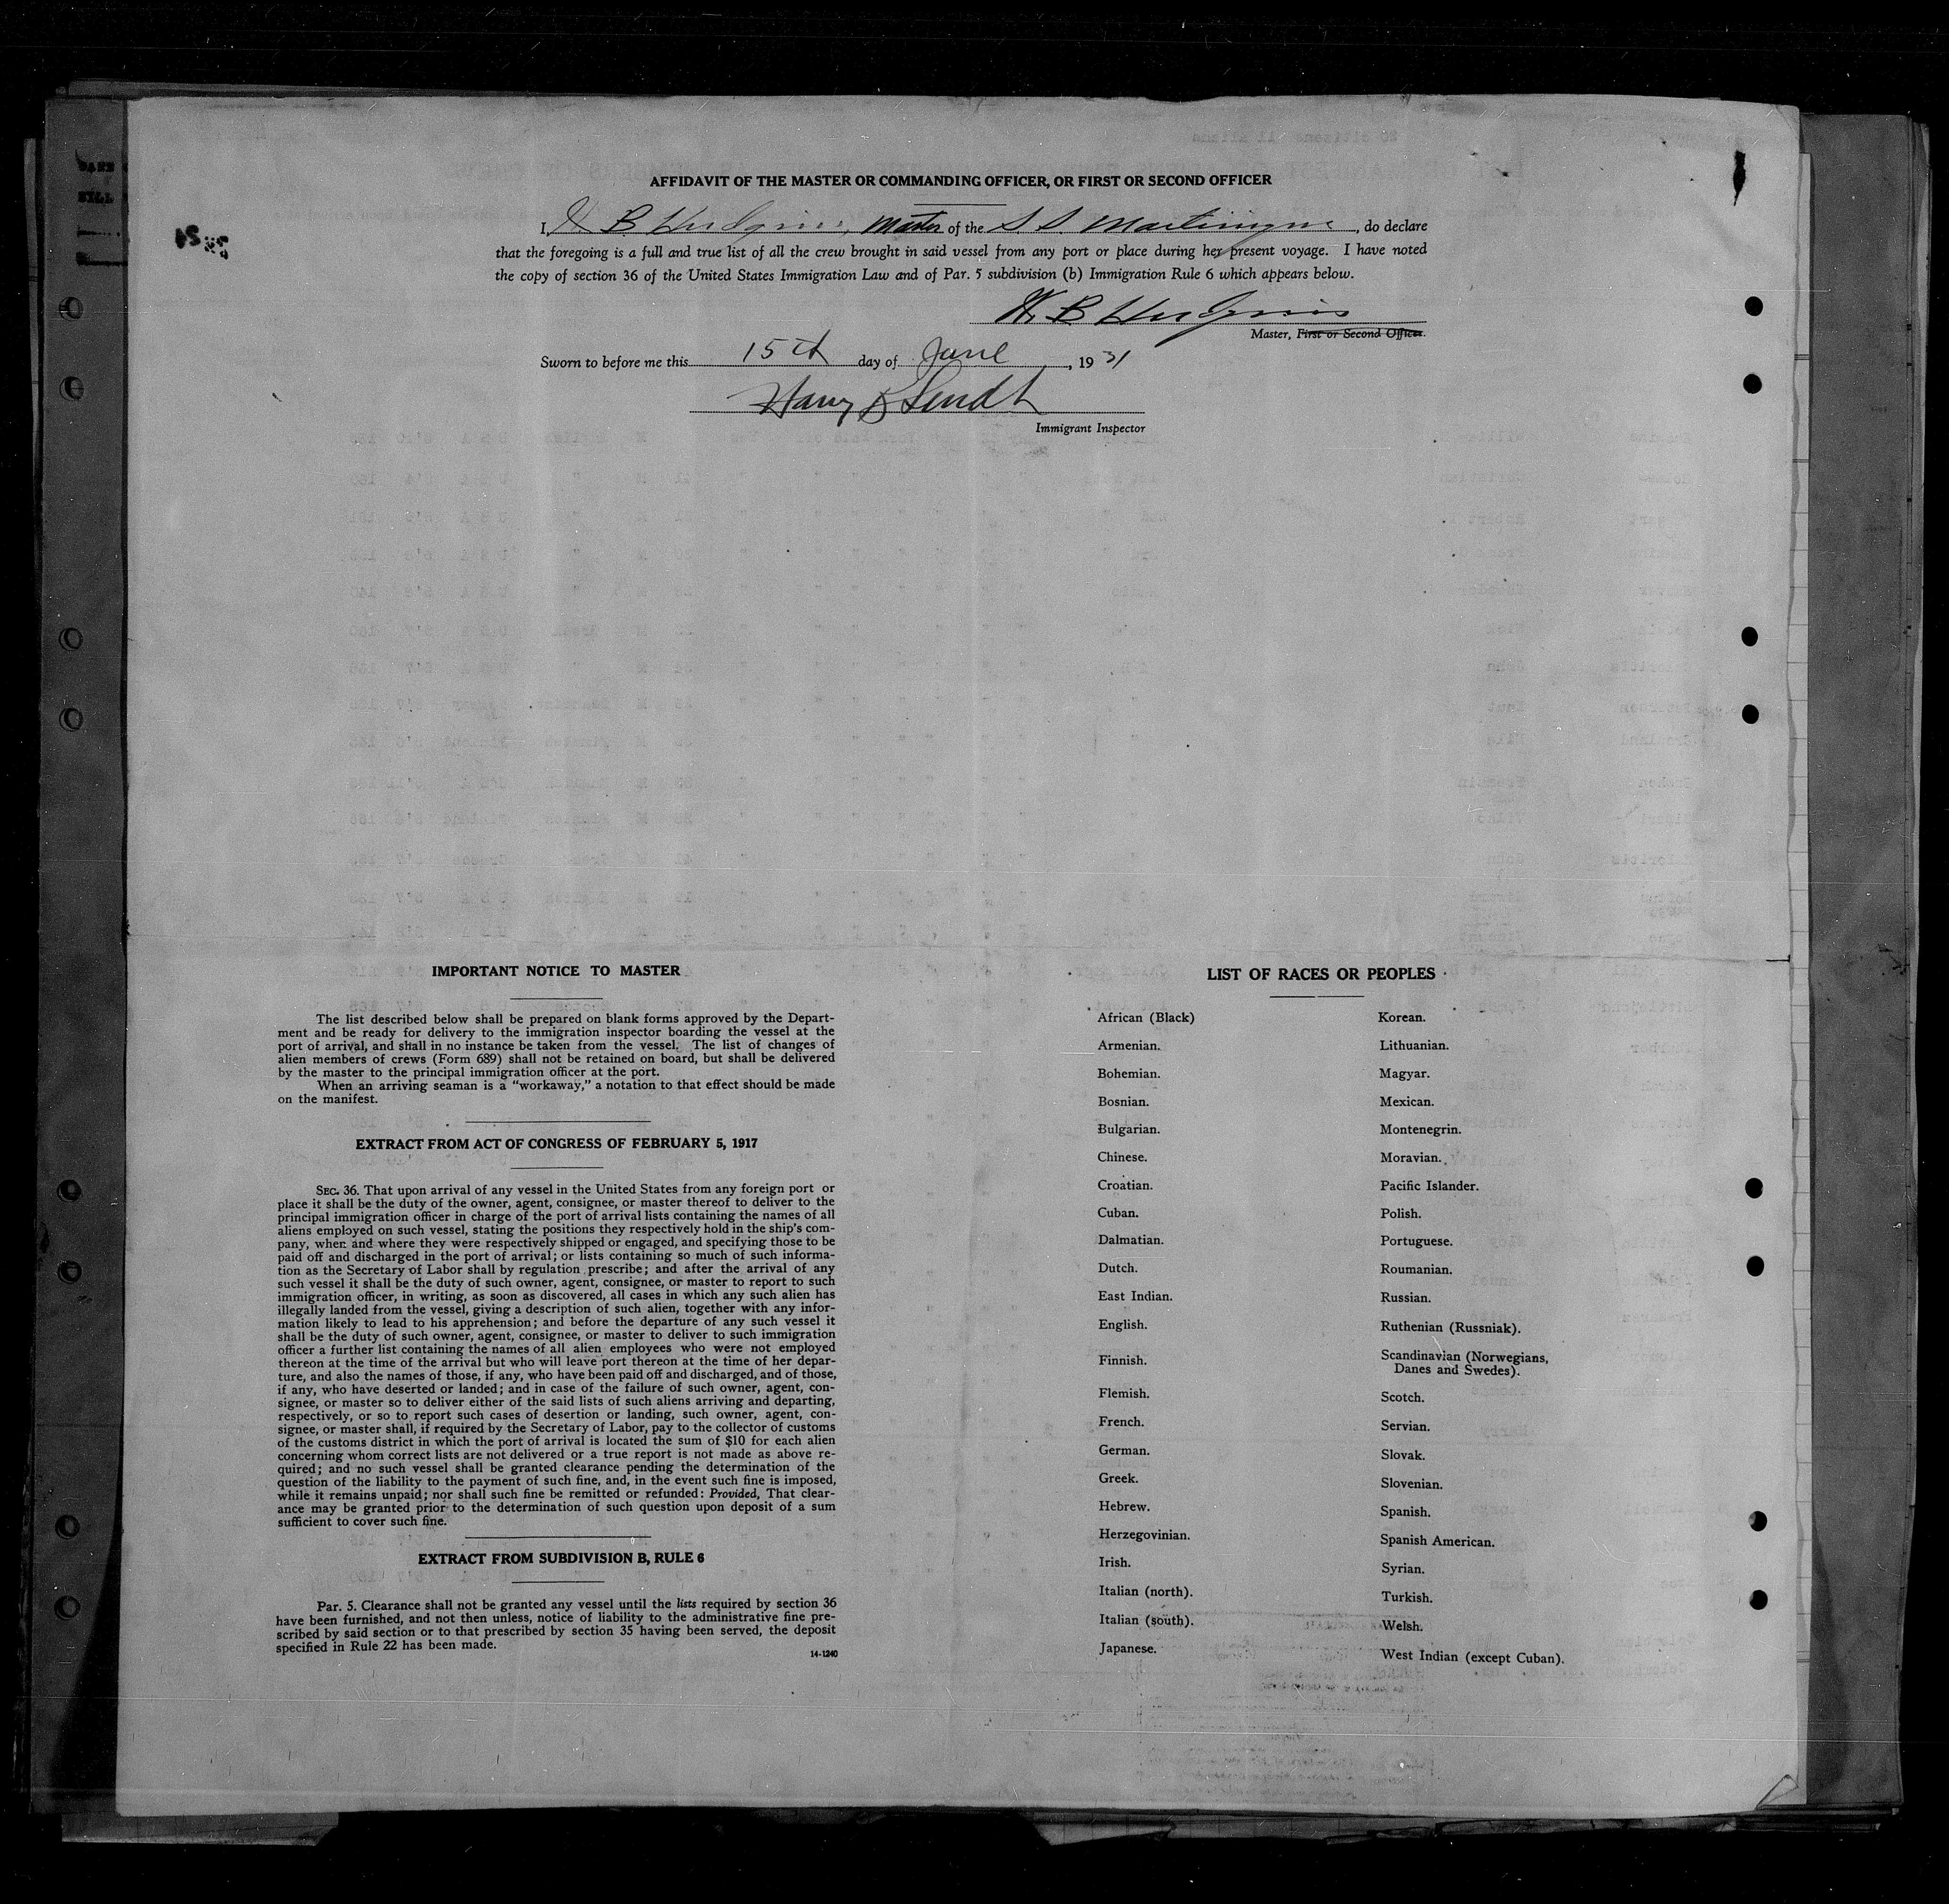 AFFIDAVIT OF THE MASTER OR COMMANDING OFFICER, OR FIRST OR SECOND OFFICER
I, W B Hudgins, Master of the S S Martinique, do declare
that the foregoing is a full and true list of all the crew brought in said vessel from any port or place during her present voyage. I have noted
the copy of section 36 of the United States Immigration Law and of Par. 5 subdivision (b) Immigration Rule 6 which appears below.
W. B Hudgins
Master, First or Second Officer.
Sworn to before me this 15th day of June, 1931
Harry
Immigrant Inspector
IMPORTANT NOTICE TO MASTER
The list described below shall be prepared on blank forms approved by the Depart-
ment and be ready for delivery to the immigration inspector boarding the vessel at the
port of arrival, and shall in no instance be taken from the vessel. The list of changes of
alien members of crews (Form 689) shall not be retained on board, but shall be delivered
by the master to the principal immigration officer at the port.
When an arriving seaman is a “workaway,” a notation to that effect should be made
on the manifest.
EXTRACT FROM ACT OF CONGRESS OF FEBRUARY 5, 1917
SEC. 36. That upon arrival of any vessel in the United States from any foreign port or
place it shall be the duty of the owner, agent, consignee, or master thereof to deliver to the
principal immigration officer in charge of the port of arrival lists containing the names of all
aliens employed on such vessel, stating the positions they respectively hold in the ship's com-
pany, when and where they were respectively shipped or engaged, and specifying those to be
paid off and discharged in the port of arrival; or lists containing so much of such informa-
tion as the Secretary of Labor shall by regulation prescribe; and after the arrival of any
such vessel it shall be the duty of such owner, agent, consignee, or master to report to such
immigration officer, in writing, as soon as discovered, all cases in which any such alien has
illegally landed from the vessel, giving a description of such alien, together with any infor-
mation likely to lead to his apprehension; and before the departure of any such vessel it
shall be the duty of such owner, agent, consignee, or master to deliver to such immigration
officer a further list containing the names of all alien employees who were not employed
thereon at the time of the arrival but who will leave port thereon at the time of her depar-
ture, and also the names of those, if any, who have been paid off and discharged, and of those,
if any, who have deserted or landed; and in case of the failure of such owner, agent, con-
signee, or master so to deliver either of the said lists of such aliens arriving and departing,
respectively, or so to report such cases of desertion or landing, such owner, agent, con-
signee, or master shall, if required by the Secretary of Labor, pay to the collector of customs
of the customs district in which the port of arrival is located the sum of $10 for each alien
concerning whom correct lists are not delivered or a true report is not made as above re-
quired; and no such vessel shall be granted clearance pending the determination of the
question of the liability to the payment of such fine, and, in the event such fine is imposed,
while it remains unpaid; nor shall such fine be remitted or refunded: Provided, That clear-
ance may be granted prior to the determination of such question upon deposit of a sum
sufficient to cover such fine.
EXTRACT FROM SUBDIVISION B, RULE 6
Par. 5. Clearance shall not be granted any vessel until the lists required by section 36
have been furnished, and not then unless, notice of liability to the administrative fine pre-
scribed by said section or to that prescribed by section 35 having been served, the deposit
specified in Rule 22 has been made.
14-1240
LIST OF RACES OR PEOPLES
African (Black)
Armenian.
Bohemian.
Bosnian.
Bulgarian.
Chinese.
Croatian.
Cuban.
Dalmatian.
Dutch.
East Indian.
English.
Finnish.
Flemish.
French.
German.
Greek.
Hebrew.
Herzegovinian.
Irish.
Italian (north).
Italian (south).
Japanese.
Korean.
Lithuanian.
Magyar.
Mexican.
Montenegrin.
Moravian.
Pacific Islander.
Polish.
Portuguese.
Roumanian.
Russian.
Ruthenian (Russniak).
Scandinavian (Norwegians,
Danes and Swedes).
Scotch.
Servian.
Slovak.
Slovenian.
Spanish.
Spanish American.
Syrian.
Turkish.
Welsh.
West Indian (except Cuban).